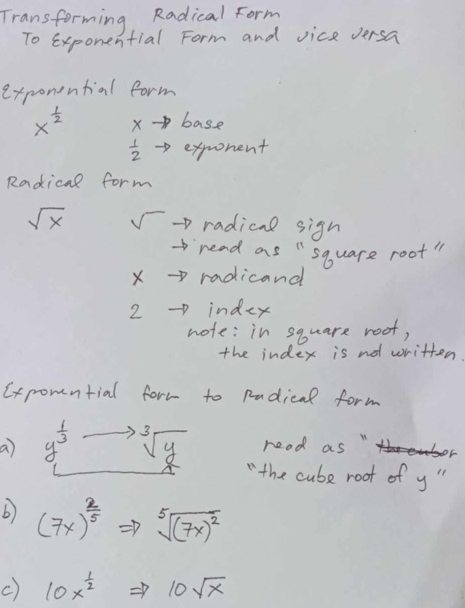 Transforming Radical Form
To Exponential Form and vice versa
Exponential form
x^½ x → base
½ → exponent
Radical form
√x √ → radical sign
→ read as "square root"
x → radicand
2 → index
note: in square root,
the index is not written.
Exponential form to Radical form
a) y^⅓ → ∛y read as "
"the cube root of y"
b) (7x)^⅖ ⇒ ⁵√(7x)²
c) 10x^½ ⇒ 10√x